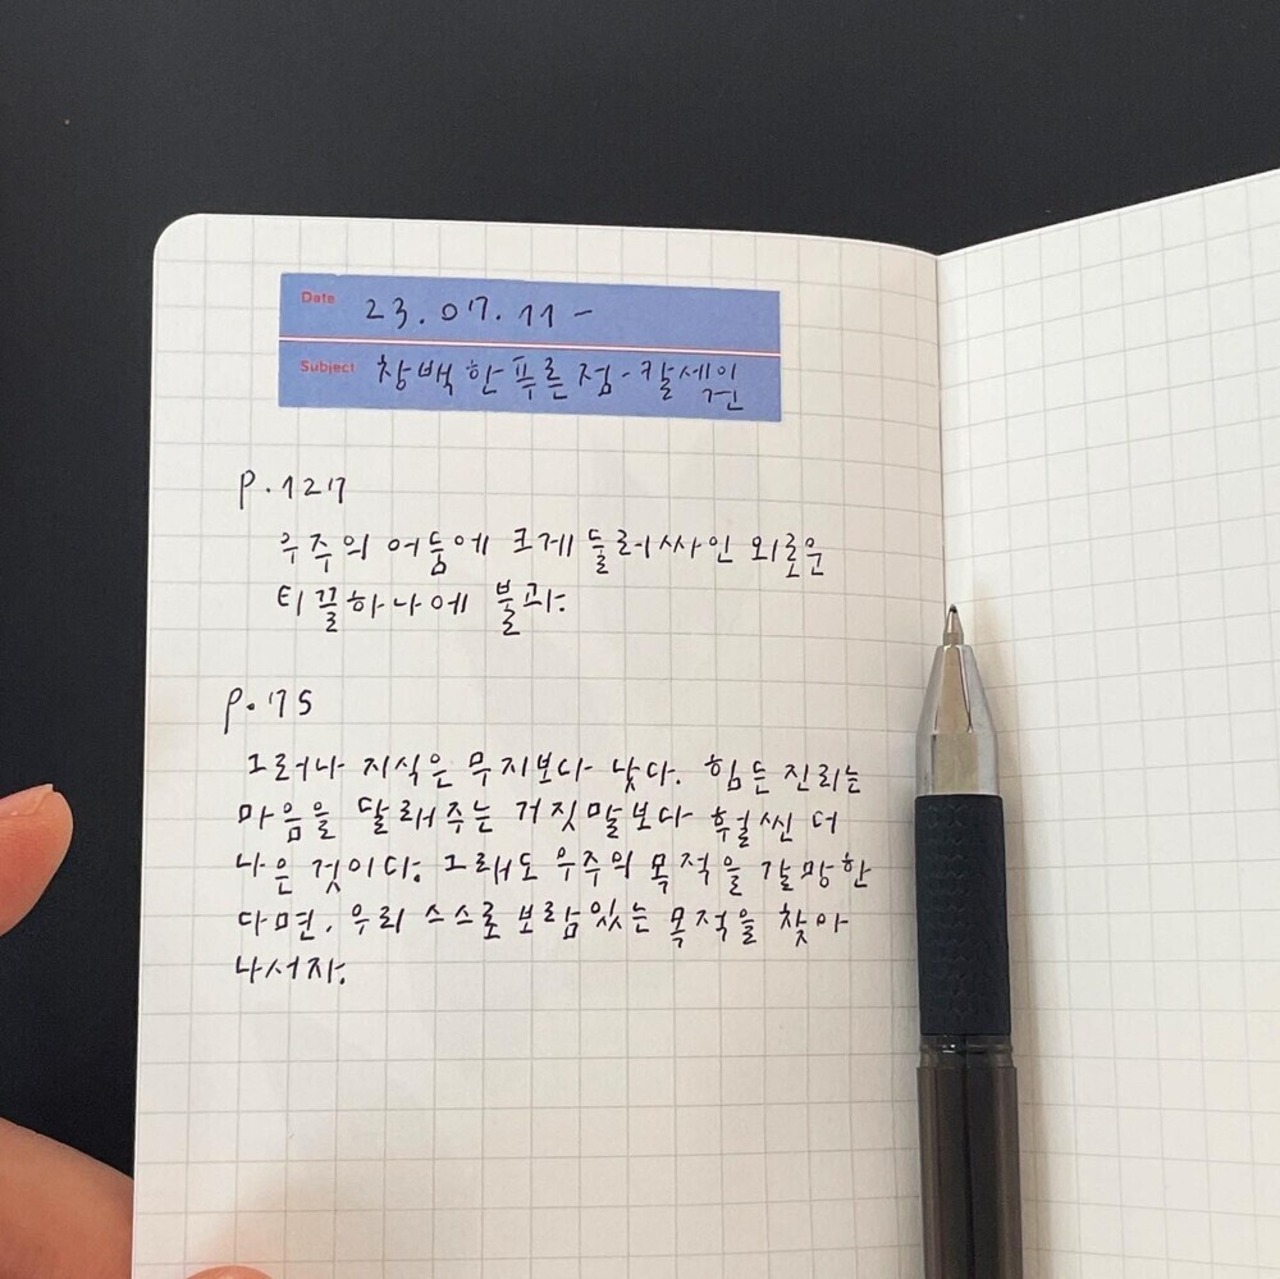 Date 23.07.11 -
Subject 창백한 푸른 점 - 칼세이건
p.127
우주의 어둠에 크게 둘러싸인 외로운
티끌하나에 불과.
p.75
그러나 지식은 무지보다 낫다. 힘든 진리는
마음을 달래주는 거짓말보다 훨씬 더
나은 것이다. 그래도 우주의 목적을 갈망한
다면, 우리 스스로 보람있는 목적을 찾아
나서자.